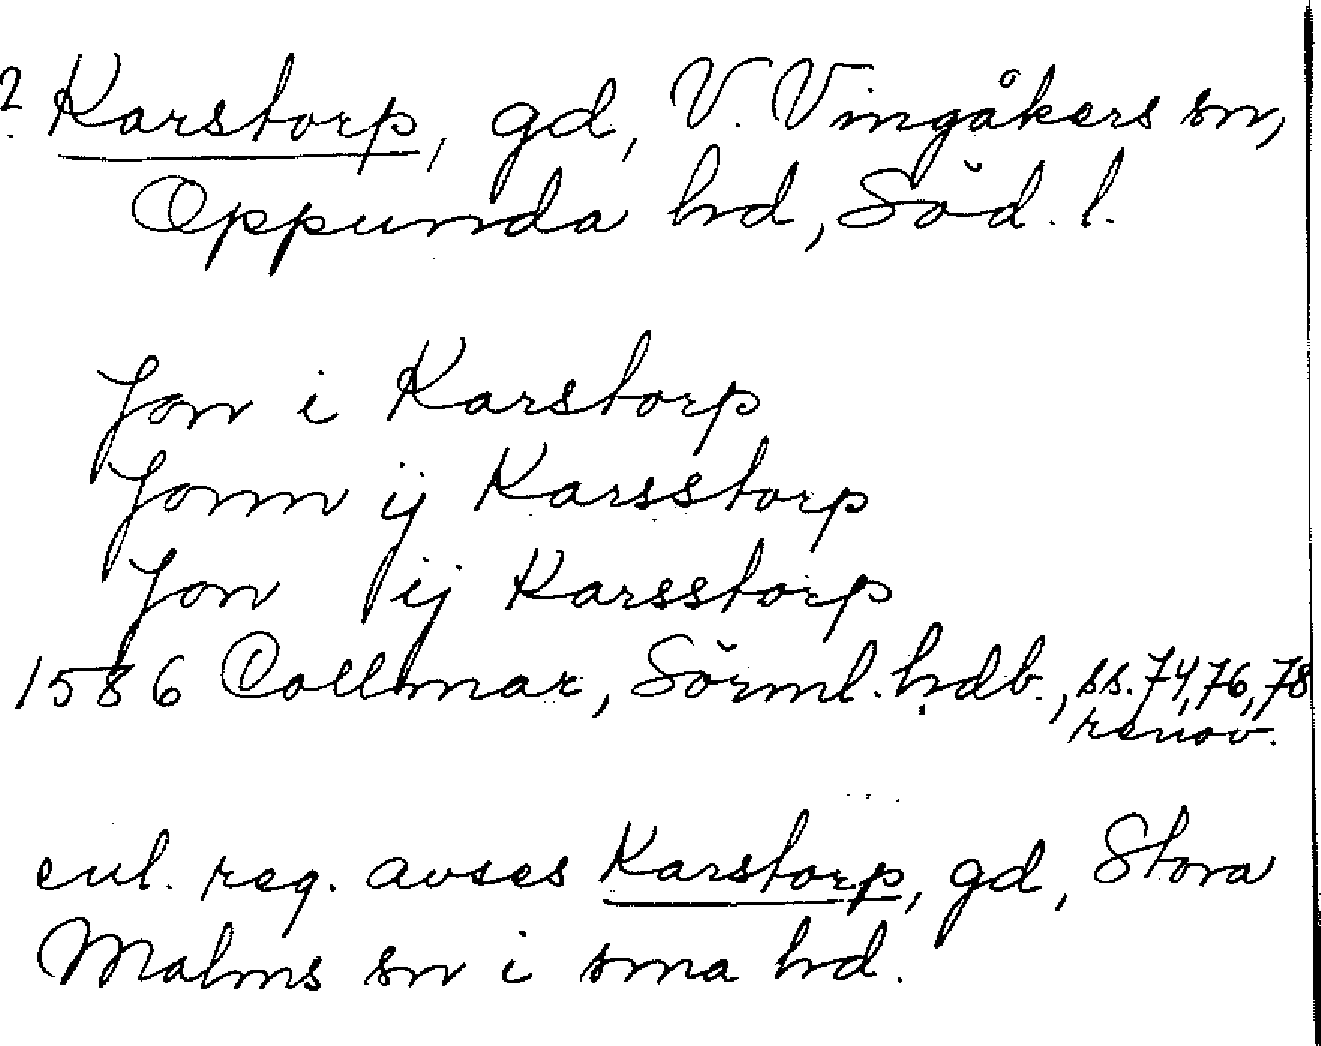 ? Karstorp, gd, V. Vingåkers sn,
Oppunda hd, Söd. l.
Jon i Karstorp
Jonn ij Karsstorp
Jon ij Karsstorp
1586 Collmar, Sörml. hdb., ss. 74, 76, 78
renov.
enl. reg. avses Karstorp, gd, Stora
Malms sn i sma hd.